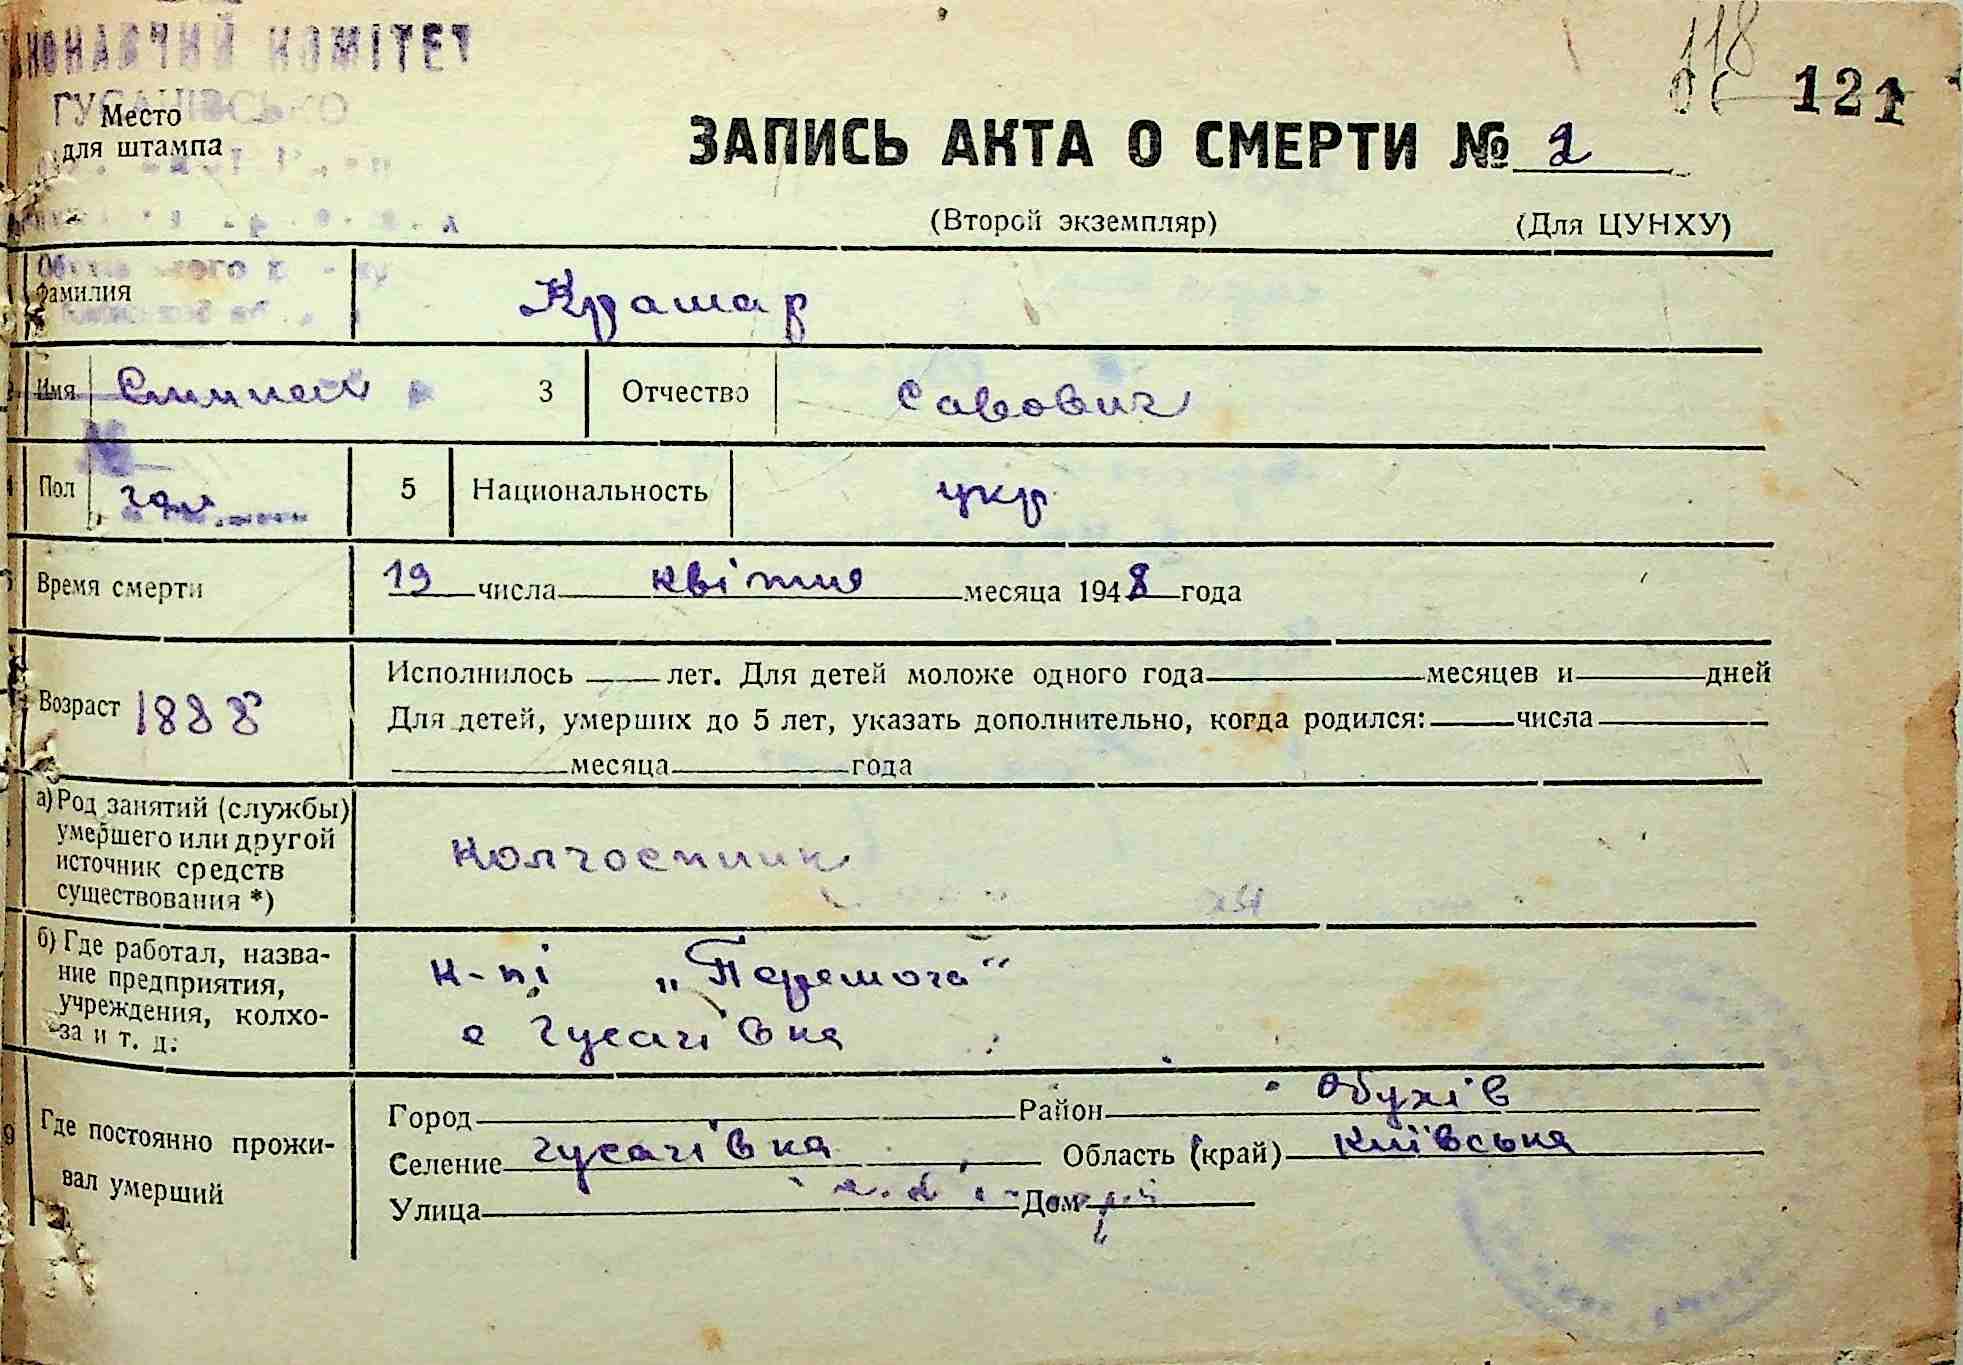 КОНАВЧИЙ КОМІТЕТ
118
121
Место
для штампа
ЗАПИСЬ АКТА О СМЕРТИ № 2
(Второй экземпляр) (Для ЦУНХУ)
Фамилия Крашар
Имя 3 Отчество Савович
Пол чол 5 Национальность укр
Время смерти 19 числа квітня месяца 1948 года
Возраст 1888
Исполнилось лет. Для детей моложе одного года месяцев и дней
Для детей, умерших до 5 лет, указать дополнительно, когда родился: числа
месяца года
а) Род занятий (службы)
умершего или другой
источник средств
существования *)
колгоспник
б) Где работал, назва-
ние предприятия,
учреждения, колхо-
за и т. д.
к-пі „Перемога“
с Гусачівка
9 Где постоянно прожи-
вал умерший
Город Район Обухів
Селение Гусачівка Область (край) Київська
Улица Дом